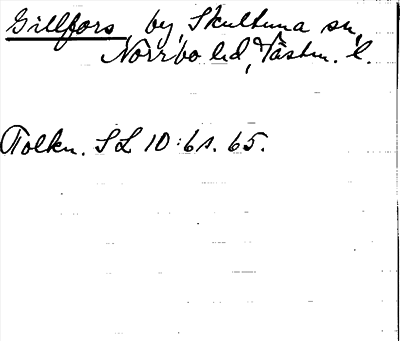 Gillfors, by, Skultuna sn,
Norrbo hd, Västm. l.
Tolkn. SL 10:61. 65.